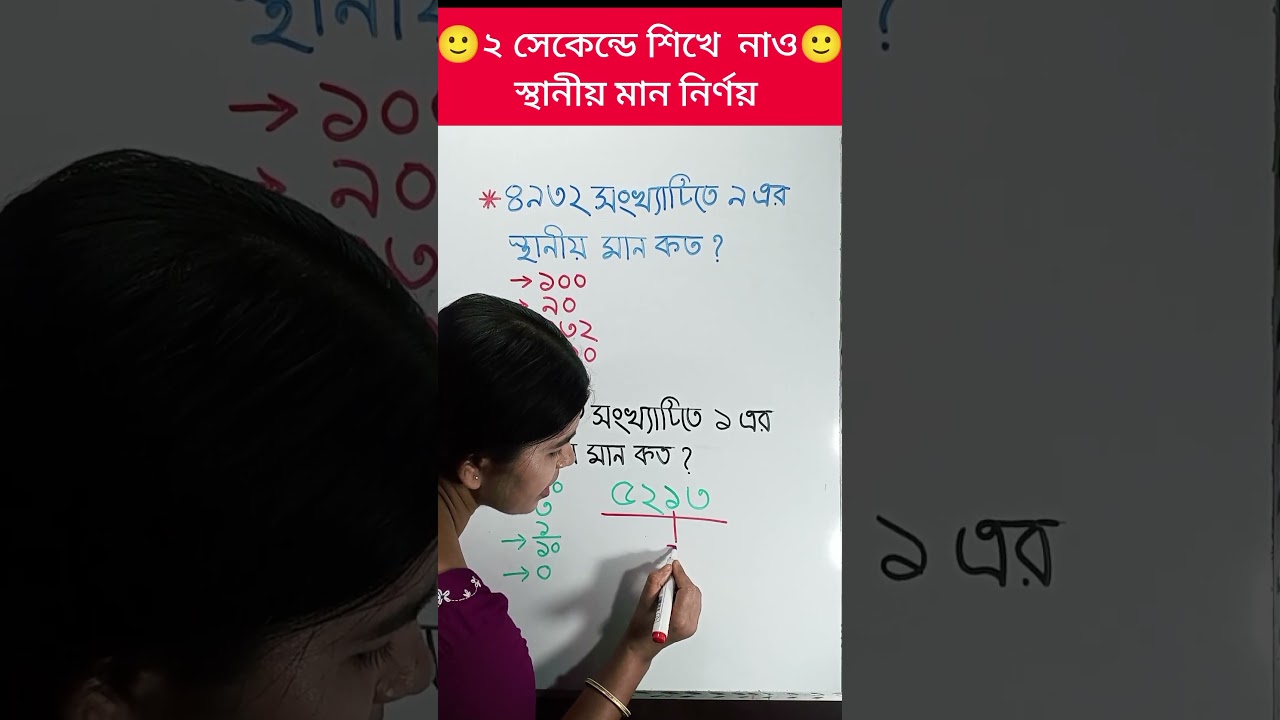 ২ সেকেন্ডে শিখে নাও
স্থানীয় মান নির্ণয়
* ৪৯৩২ সংখ্যাটিতে ৯ এর
স্থানীয় মান কত ?
→ ১০০
→ ৯০
৩২
০
সংখ্যাটিতে ১ এর
মান কত ?
৫২১৩
৩
১
→ ১০
→ ০